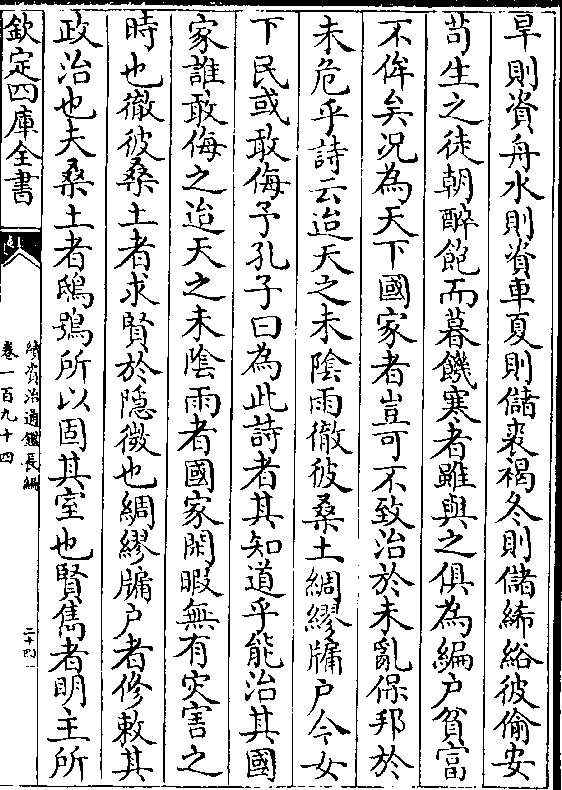 旱則資舟水則資車夏則儲裘褐冬則儲絺綌彼偷安
苟生之徒朝醉飽而暮饑寒者雖與之俱為編户貧富
不侔矣况為天下國家者豈可不致治於未亂保邦於
未危乎詩云迨天之未隂雨徹彼桑土綢繆牖户今女
下民或敢侮予孔子曰為此詩者其知道乎能治其國
家誰敢侮之迨天之未隂雨者國家閒暇無有灾害之
時也徹彼桑土者求賢於隠微也綢繆牖户者修敕其
政治也夫桑土者鴟鴞所以固其室也賢雋者明主所
欽定四庫全書
續資治通鑑長編
卷一百九十四
二十四